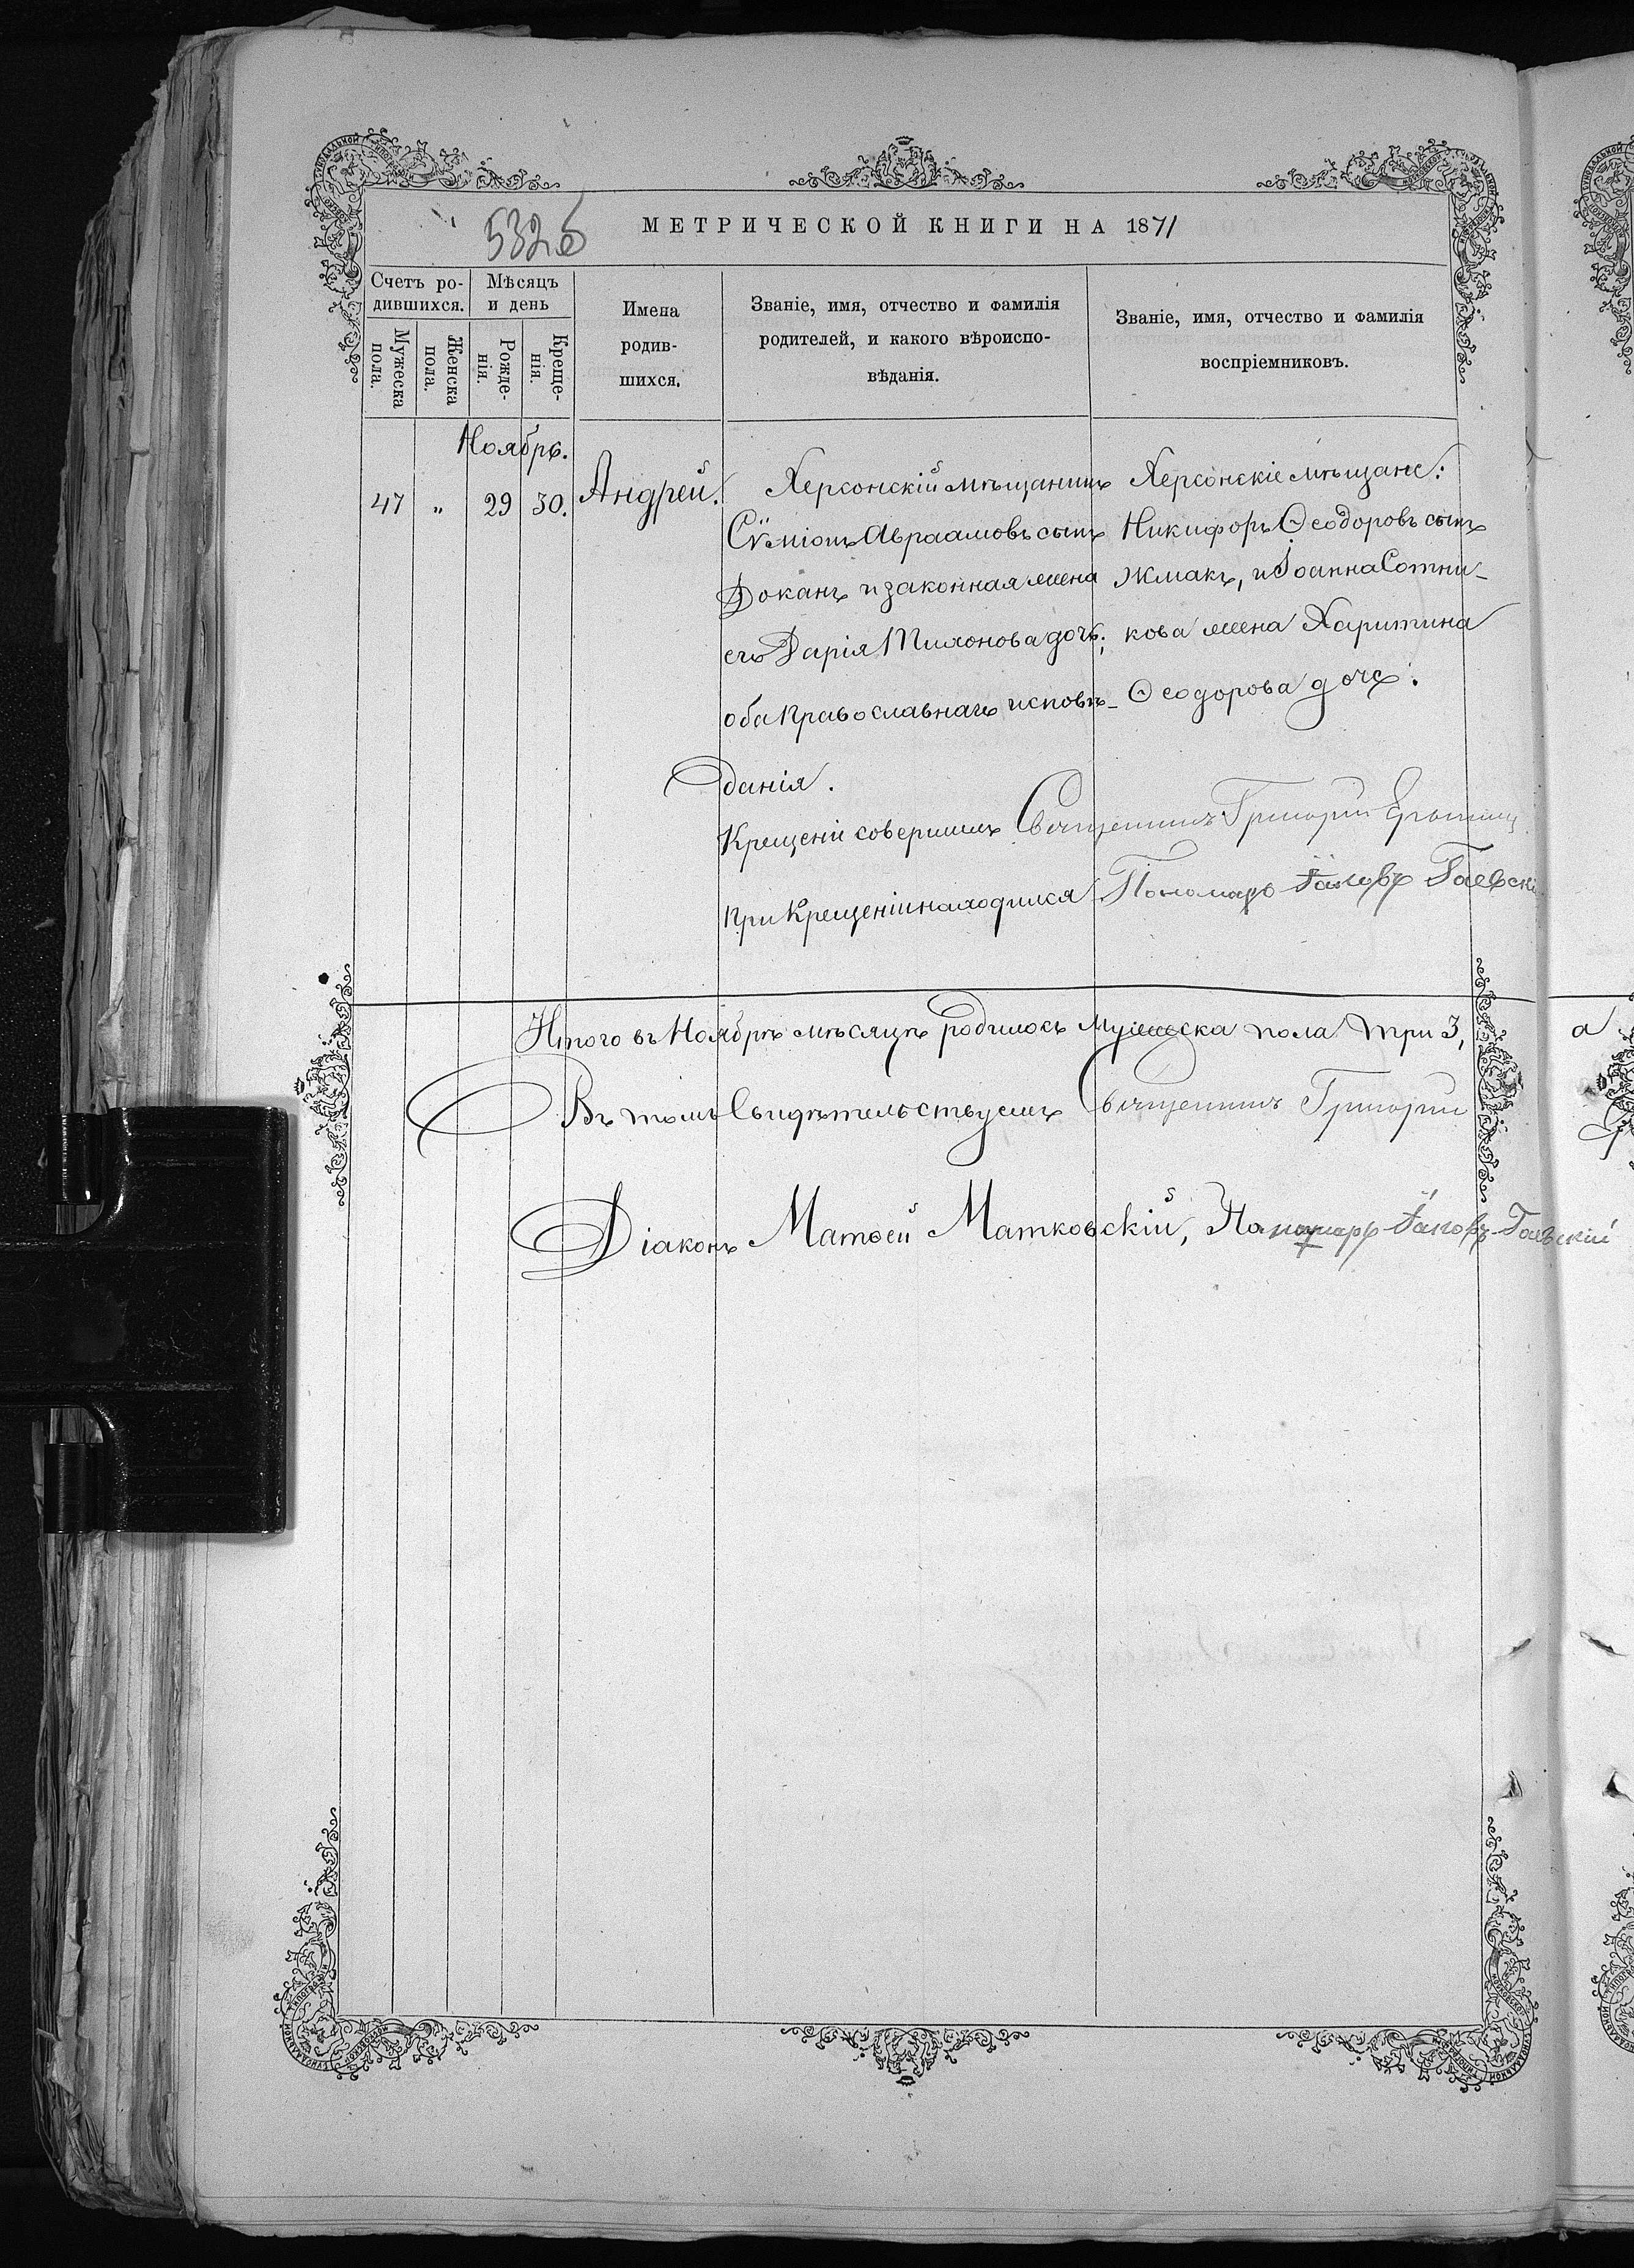 532б
МЕТРИЧЕСКОЙ КНИГИ НА 1871
Счетъ ро-
дившихся.
Мѣсяцъ
и день
Мужеска
пола.
Женска
пола.
Рожде-
нія.
Креще-
нія.
Имена
родив-
шихся.
Званіе, имя, отчество и фамилія
родителей, и какого вѣроиспо-
вѣданія.
Званіе, имя, отчество и фамилія
воспріемниковъ.
Ноябрь.
47 „ 29 30. Андрей.
Херсонскій мѣщанинъ
Сѵміонъ Авраамовъ сынъ
Доканъ и законная жена
его Дарія Тихонова дочь;
оба православнаго исповѣ-
данія.
Херсонскіе мѣщане:
Никифоръ Ѳеодоровъ сынъ
Жмакъ, и Іоанна Сотни-
кова жена Харитина
Ѳеодорова дочь.
Крещеніе совершилъ Священникъ Григорій
При Крещеніи находился Пономарь Іаковъ Гаевскі
Итого въ Ноябрѣ мѣсяцѣ родилось Мужеска пола три 3,
Въ томъ Свидѣтельствуемъ Священникъ Григорій
Діаконъ Матѳей Матковскій, Пономарь Іаковъ Гаевскій
а